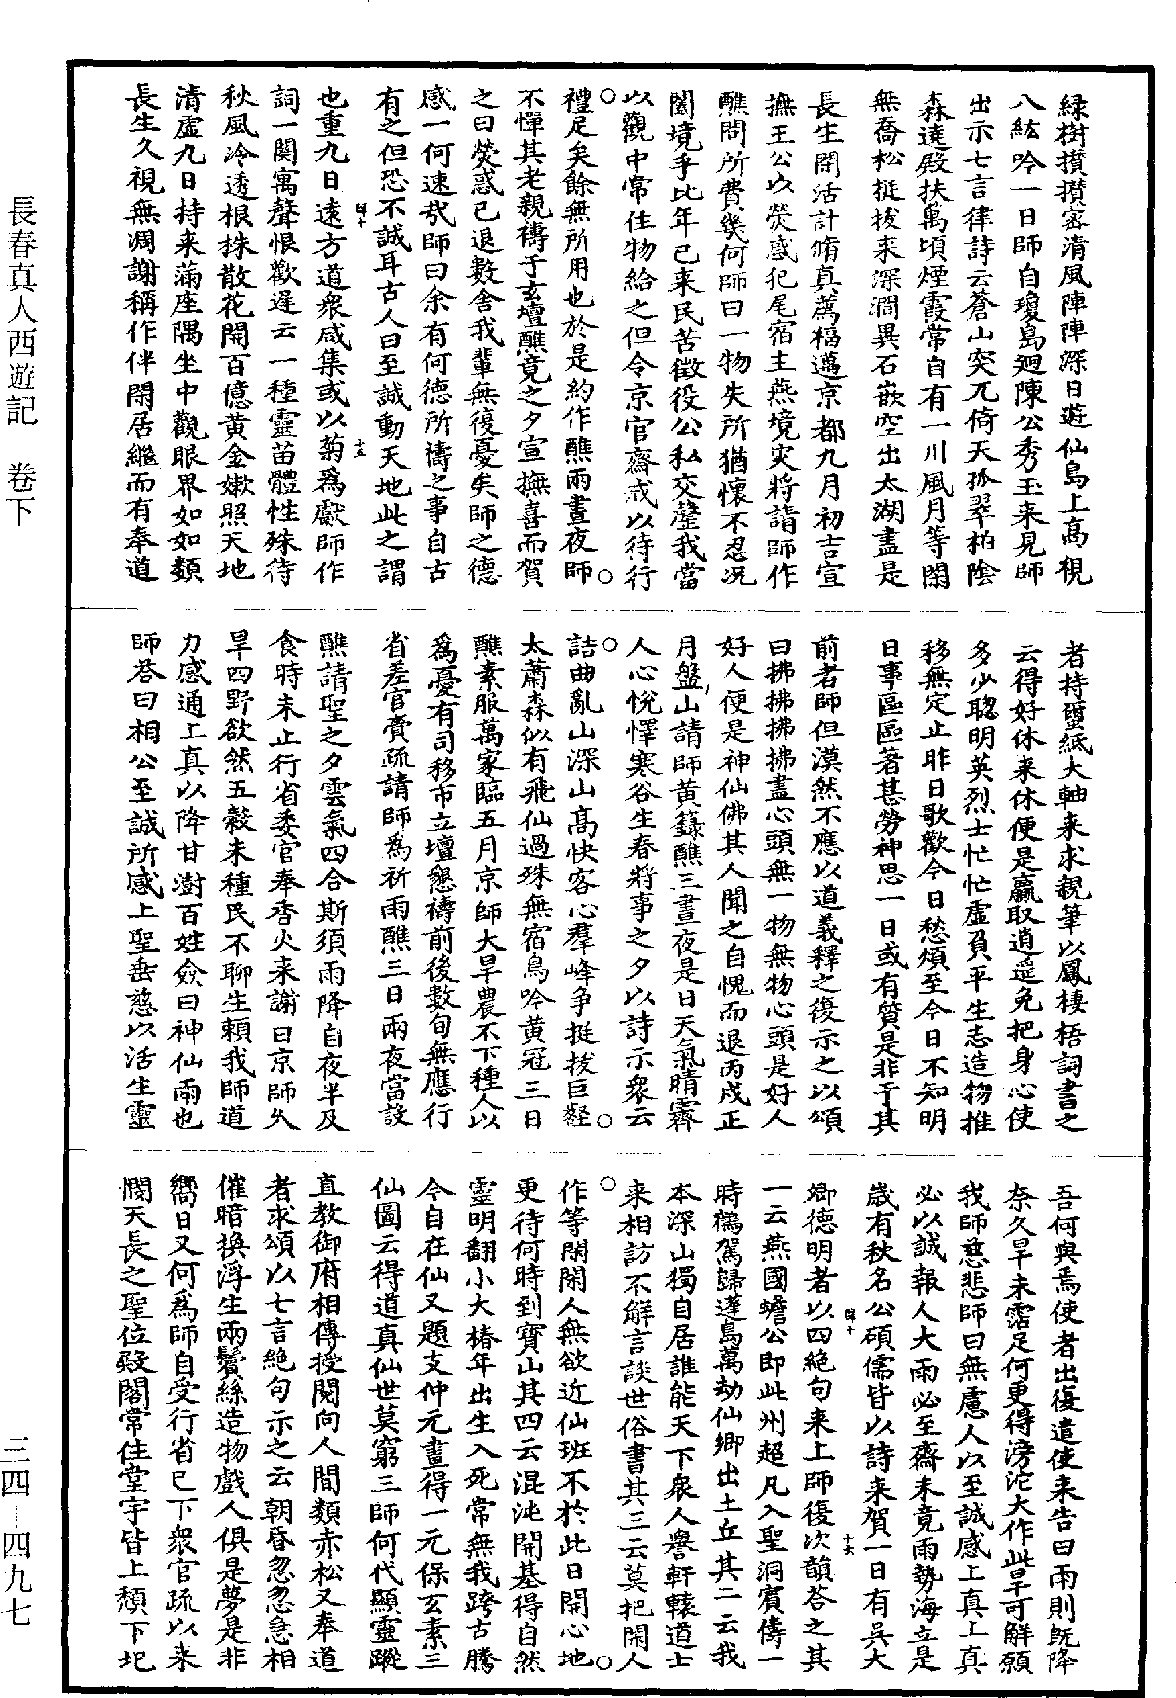 綠樹攢攢密清風陣陣深日遊仙島上高視
八紘吟一日師自瓊島廻陳公秀玉来見師
出示七言律詩云蒼山突兀倚天孤翠柏陰
森遶殿扶萬頃煙霞常自有一川風月等閑
無喬松挺拔来深澗異石嵌空出太湖盡是
長生閑活計脩真薦福邁京都九月初吉宣
撫王公以熒惑犯尾宿主燕境灾將請師作
醮問所費幾何師曰一物失所猶懷不忍况
闔境乎比年已来民苦徵役公私交罄我當
以觀中常住物給之但令京官齋戒以待行
禮足矣餘無所用也於是約作醮兩晝夜師
不憚其老親禱于玄壇醮竟之夕宣撫喜而賀
之曰熒惑已退數舍我輩無復憂矣師之德
感一何速哉師曰余有何德所禱之事自古
有之但恐不誠耳古人曰至誠動天地此之謂
也重九日遠方道衆咸集或以菊為獻師作
詞一闋寓聲恨歡遲云一種靈苗體性殊待
秋風冷透根株散花開百億黃金嫰照天地
清虛九日持来滿座隅坐中觀眼界如如類
長生久視無凋謝稱作伴閑居繼而有奉道
者持蠒紙大軸来求親筆以鳳棲梧詞書之
云得好休来休便是贏取逍遥免把身心使
多少聦明英烈士忙忙虛負平生志造物推
移無定止昨日歌歡今日愁煩至今日不知明
日事區區著甚勞神思一日或有質是非于其
前者師但漠然不應以道義釋之復示之以頌
曰拂拂拂拂盡心頭無一物無物心頭是好人
好人便是神仙佛其人聞之自愧而退丙戌正
月盤山請師黃籙醮三晝夜是日天氣晴霽
人心悅懌寒谷生春將事之夕以詩示衆云
詰曲亂山深山高快客心羣峰争挺拔巨壑
太蕭森似有飛仙過殊無宿鳥吟黃冠三日
醮素服萬家臨五月京師大旱農不下種人以
為憂有司移市立壇懇禱前後數旬無應行
省差官賫疏請師為祈雨醮三日兩夜當設
醮請聖之夕雲氣四合斯須雨降自夜半及
食時未止行省委官奉香火来謝曰京師久
旱四野欲然五穀未種民不聊生賴我師道
力感通上真以降甘澍百姓僉曰神仙雨也
師荅曰相公至誠所感上聖垂慈以活生靈
吾何與焉使者出復遣使来告曰雨則既降
奈久旱未霑足何更得滂沱大作此旱可解願
我師慈悲師曰無慮人以至誠感上真上真
必以誠報人大雨必至齋未竟雨勢海立是
嵗有秋名公碩儒皆以詩来賀一日有吳大
卿德明者以四絶句来上師復次韻荅之其
一云燕國蟾公即此州超凡入聖洞賓儔一
時鶴駕歸蓬島萬劫仙鄉出土丘其二云我
本深山獨自居誰能天下衆人譽軒轅道士
来相訪不解言談世俗書其三云莫把閑人
作等閑閑人無欲近仙班不於此日開心地
更待何時到寶山其四云混沌開基得自然
靈明翻小大椿年出生入死常無我跨古騰
今自在仙又題支仲元畫得一元保玄素三
仙圖云得道真仙世莫窮三師何代顯靈蹤
直教御府相傳授閱向人間類赤松又奉道
者求頌以七言絶句示之云朝昏忽忽急相
催暗換浮生兩鬢絲造物戲人俱是夢是非
嚮日又何為師自受行省已下衆官疏以来
憫天長之聖位殿閣常住堂宇皆上頹下圯
長春真人西遊記　卷下
三四—四九七